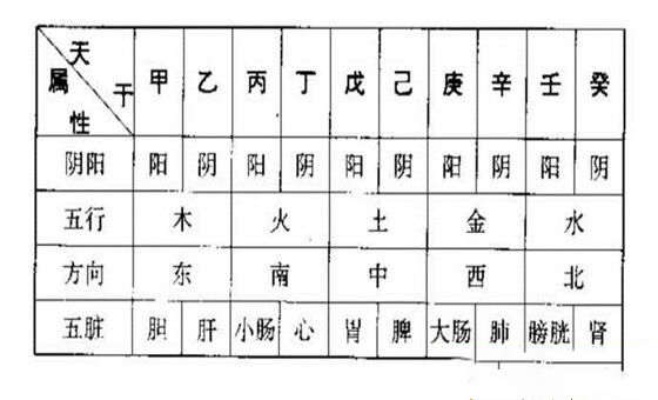 天干 属性 甲 乙 丙 丁 戊 己 庚 辛 壬 癸
阴阳 阳 阴 阳 阴 阳 阴 阳 阴 阳 阴
五行 木 火 土 金 水
方向 东 南 中 西 北
五脏 胆 肝 小肠 心 胃 脾 大肠 肺 膀胱 肾